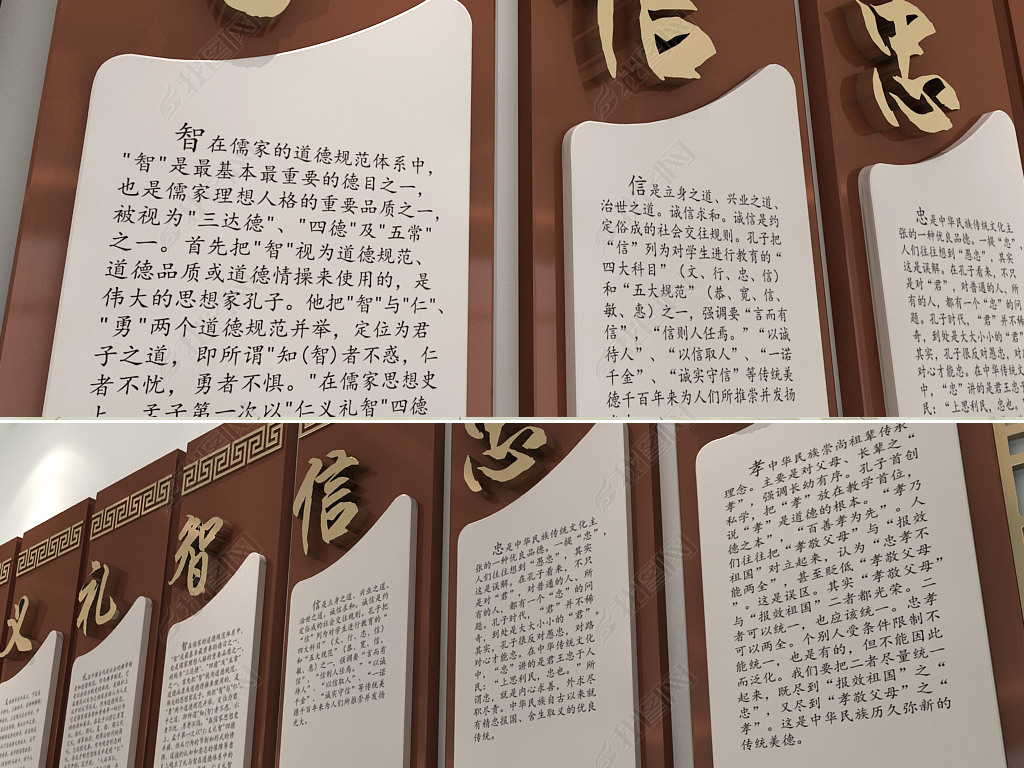 信
忠
智在儒家的道德规范体系中，
"智"是最基本最重要的德目之一，
也是儒家理想人格的重要品质之一，
被视为"三达德"、"四德"及"五常"
之一。首先把"智"视为道德规范、
道德品质或道德情操来使用的，是
伟大的思想家孔子。他把"智"与"仁"、
"勇"两个道德规范并举，定位为君
子之道，即所谓"知(智)者不惑，仁
者不忧，勇者不惧。"在儒家思想史
上，孟子第一次以"仁义礼智"四德
信是立身之道、兴业之道、
治世之道。诚信求和。诚信是约
定俗成的社会交往规则。孔子把
“信”列为对学生进行教育的“
四大科目”（文、行、忠、信）
和“五大规范”（恭、宽、信、
敏、惠）之一，强调要“言而有
信”，“信则人任焉。”“以诚
待人”、“以信取人”、“一诺
千金”、“诚实守信”等传统美
德千百年来为人们所推崇并发扬
忠是中华民族传统文化主
张的一种优良品德。一提“忠”，
人们往往想到“愚忠”，其实
这是误解。在孔子看来，不只
是对“君”，对普通的人、所
有的人，都有一个“忠”的问
题。孔子时代，“君”并不稀
奇，到处是大大小小的“君”
其实，孔子很反对愚忠，对路
对心才能忠。在中华传统文化
中，“忠”讲的是君王忠于
民：“上思利民，忠也。
义
礼
智
信
忠
信是立身之道、兴业之道、
治世之道。诚信求和。诚信是约
定俗成的社会交往规则。孔子把
“信”列为对学生进行教育的“
四大科目”（文、行、忠、信）
和“五大规范”（恭、宽、信、
敏、惠）之一，强调要“言而有
信”，“信则人任焉。”“以诚
待人”、“以信取人”、“一诺
千金”、“诚实守信”等传统美
德千百年来为人们所推崇并发扬
光大。
忠是中华民族传统文化主
张的一种优良品德。一提“忠”，
人们往往想到“愚忠”，其实
这是误解。在孔子看来，不只
是对“君”，对普通的人、所
有的人，都有一个“忠”的问
题。孔子时代，“君”并不稀
奇，到处是大大小小的“君”。
其实，孔子很反对愚忠，对路
对心才能忠。在中华传统文化
中，“忠”讲的是君王忠于人
民：“上思利民，忠也。”所
谓忠，就是内心求善，外求尽
职尽责。中华民族自古以来就
有精忠报国、舍生取义的优良
传统。
孝中华民族崇尚祖辈传承
理念。主要是对父母、长辈之“
孝”，强调长幼有序。孔子首创
私学，把“孝”放在教学首位，
说“孝”是道德的根本。“孝乃
德之本”，“百善孝为先”。人
们往往把“孝敬父母”与“报效
祖国”对立起来，认为“忠孝不
能两全”，甚至贬低“孝敬父母”
”。这是误区。其实“孝敬父母”
与“报效祖国”二者都光荣。二
者可以统一，也应该统一。忠孝
可以两全。个别人受条件限制不
能统一，也是有的，但不能因此
而泛化。我们要把二者尽量统一
起来，既尽到“报效祖国”之“
忠”，又尽到“孝敬父母”之“
孝”。这是中华民族历久弥新的
传统美德。